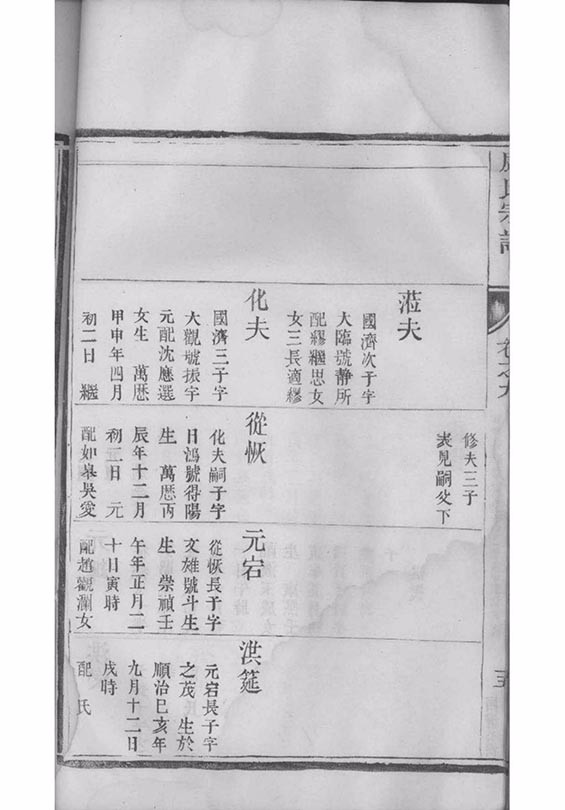 氏宗譜
卷之九
五
修夫三子
表見嗣父下
蒞夫
國濟次子字
大臨號靜所
配繆繼思女
女三長適繆
化夫
國濟三子字
大觀號振宇
元配沈應選
女生 萬曆
甲申年四月
初二日 繼
從恢
化夫嗣子字
日鴻號得陽
生 萬曆丙
辰年十二月
初二日 元
配如皋吳愛
元宕
從恢長子字
文雄號斗生
生 崇禎壬
午年正月二
十日寅時
配趙觀瀾女
洪筵
元宕長子字
之茂 生於
順治己亥年
九月十二日
戌時
配 氏